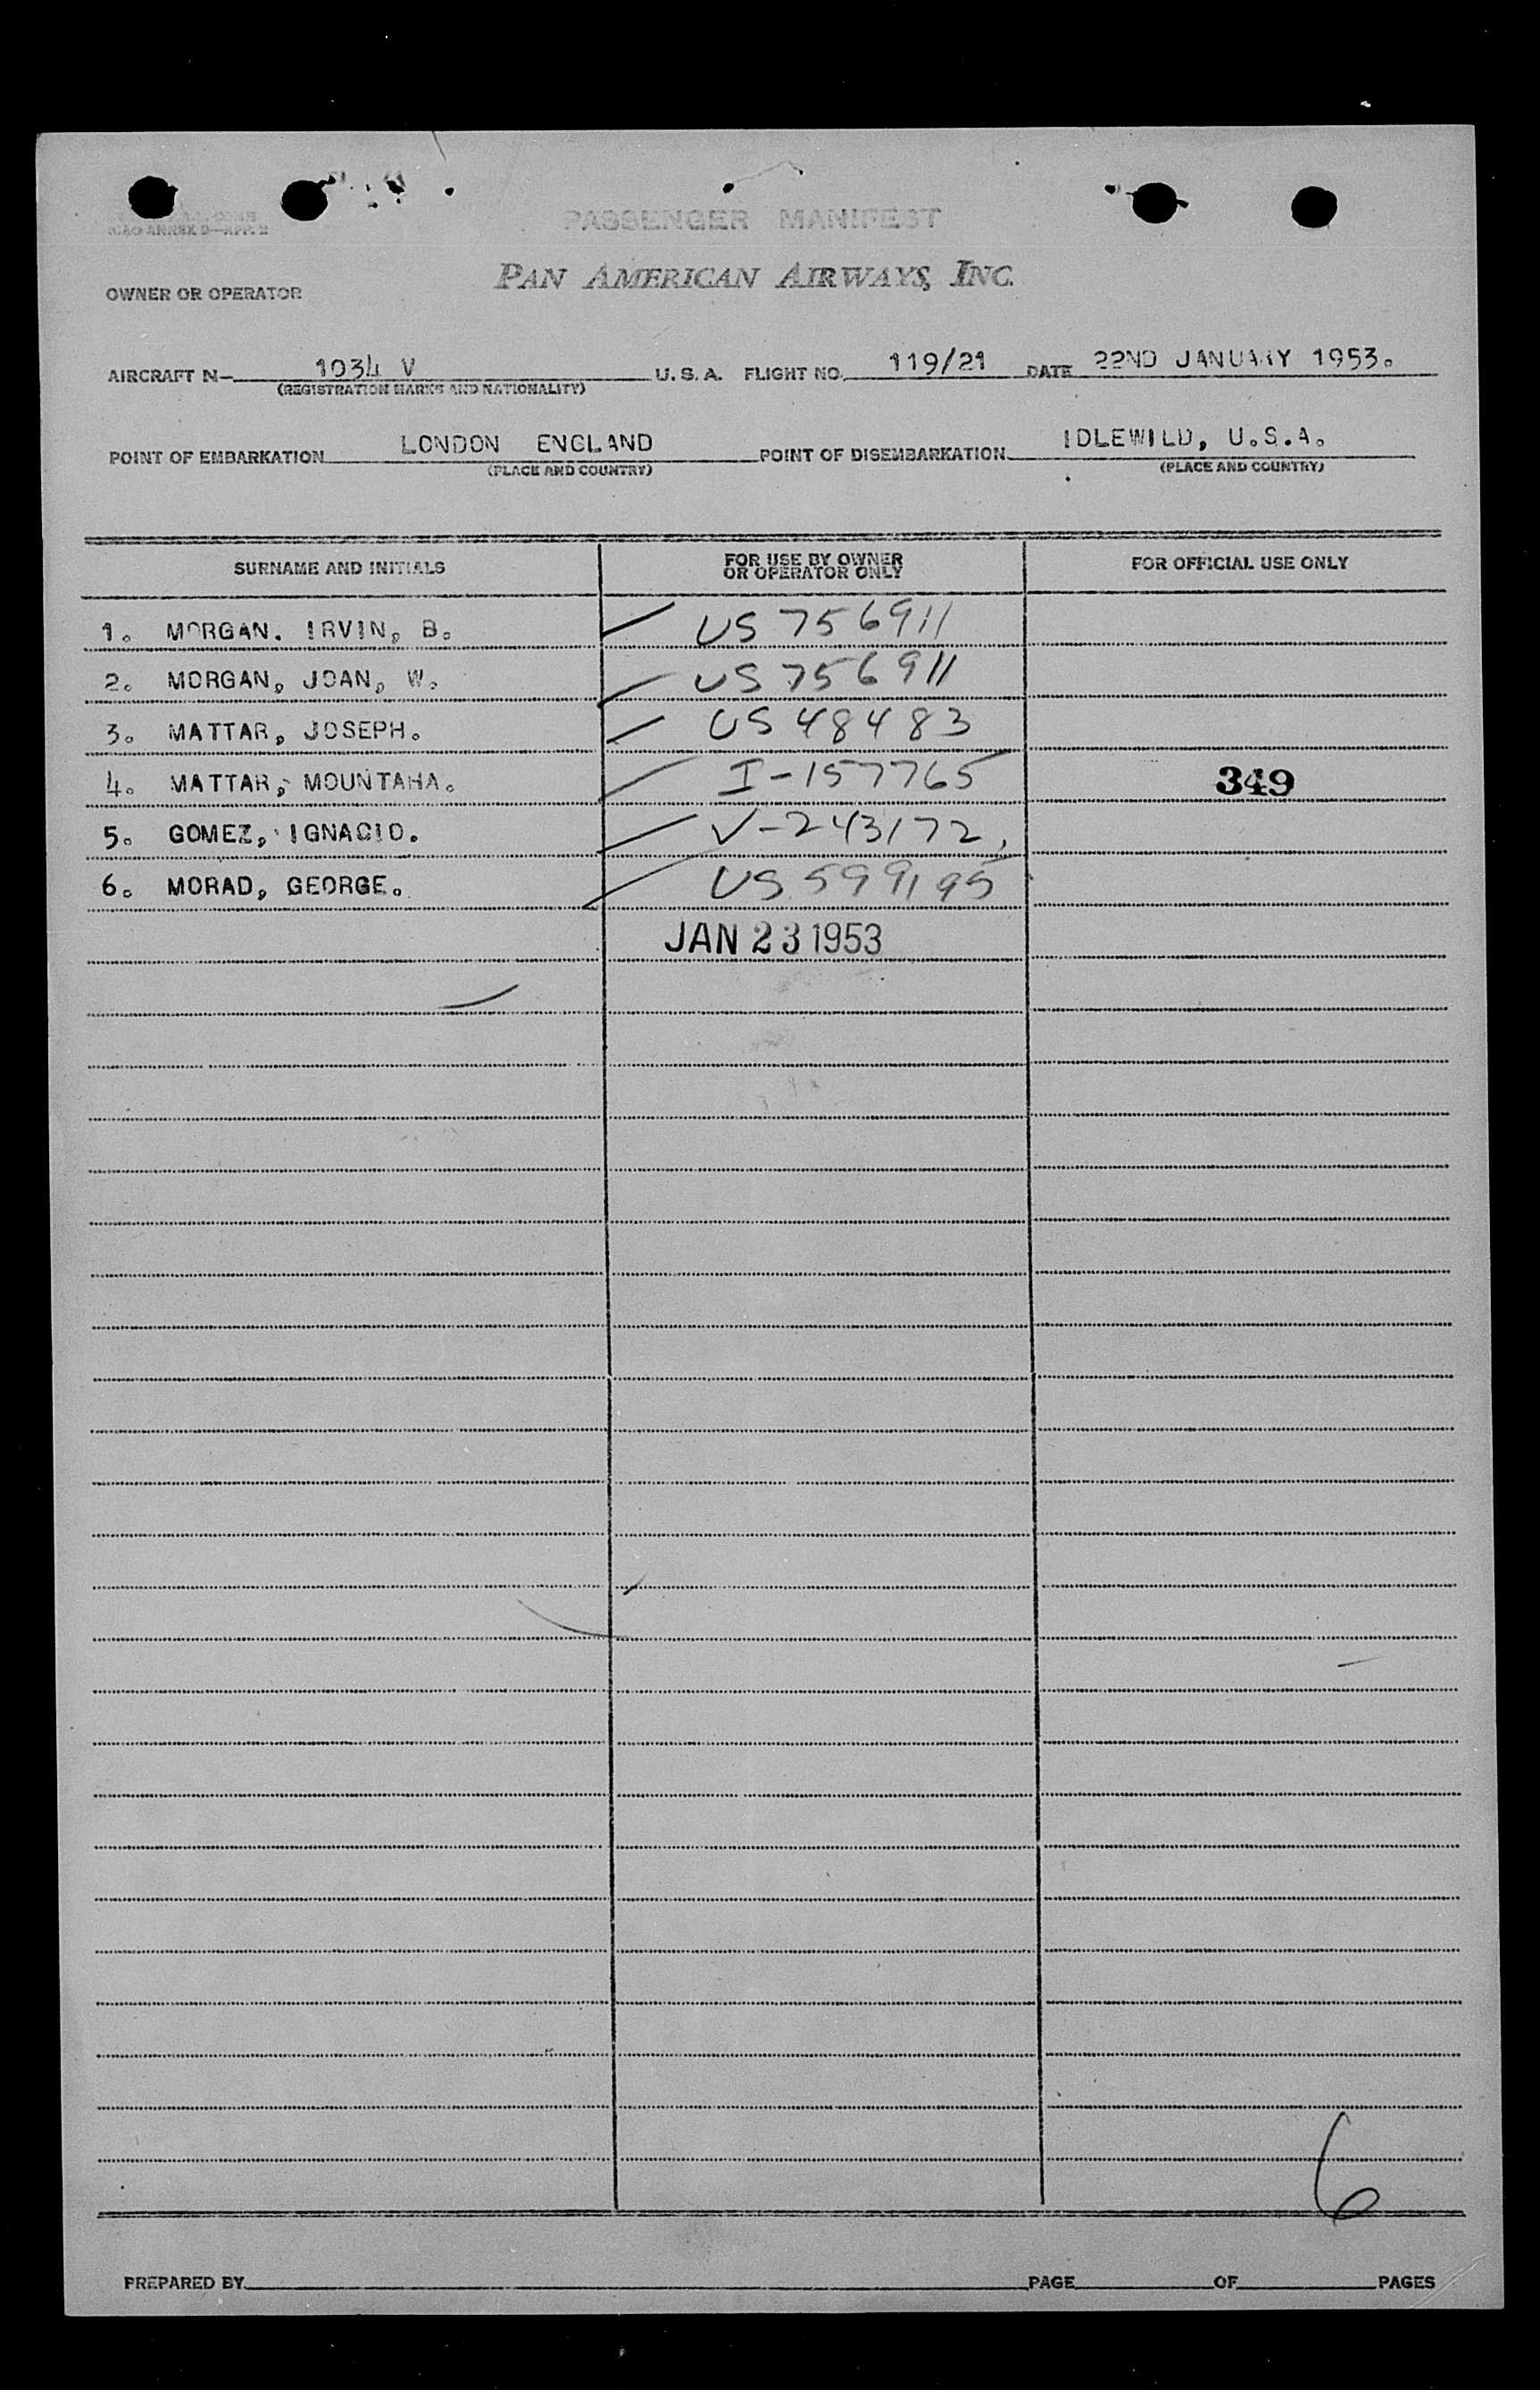 ICAO ANNEX 9—APP. 2
PASSENGER MANIFEST
OWNER OR OPERATOR
PAN AMERICAN AIRWAYS, INC.
AIRCRAFT N- 1034 V U. S. A. FLIGHT NO. 119/21 DATE 22ND JANUARY 1953.
(REGISTRATION MARKS AND NATIONALITY)
POINT OF EMBARKATION LONDON ENGLAND POINT OF DISEMBARKATION IDLEWILD, U.S.A.
(PLACE AND COUNTRY) (PLACE AND COUNTRY)
SURNAME AND INITIALS FOR USE BY OWNER OR OPERATOR ONLY FOR OFFICIAL USE ONLY
1. MORGAN. IRVIN, B. US 756911
2. MORGAN, JOAN, W. US 756911
3. MATTAR, JOSEPH. US 48483
4. MATTAR, MOUNTAHA. I-157765 349
5. GOMEZ, IGNACIO. V-243172,
6. MORAD, GEORGE. US 599195
JAN 23 1953
6
PREPARED BY PAGE OF PAGES